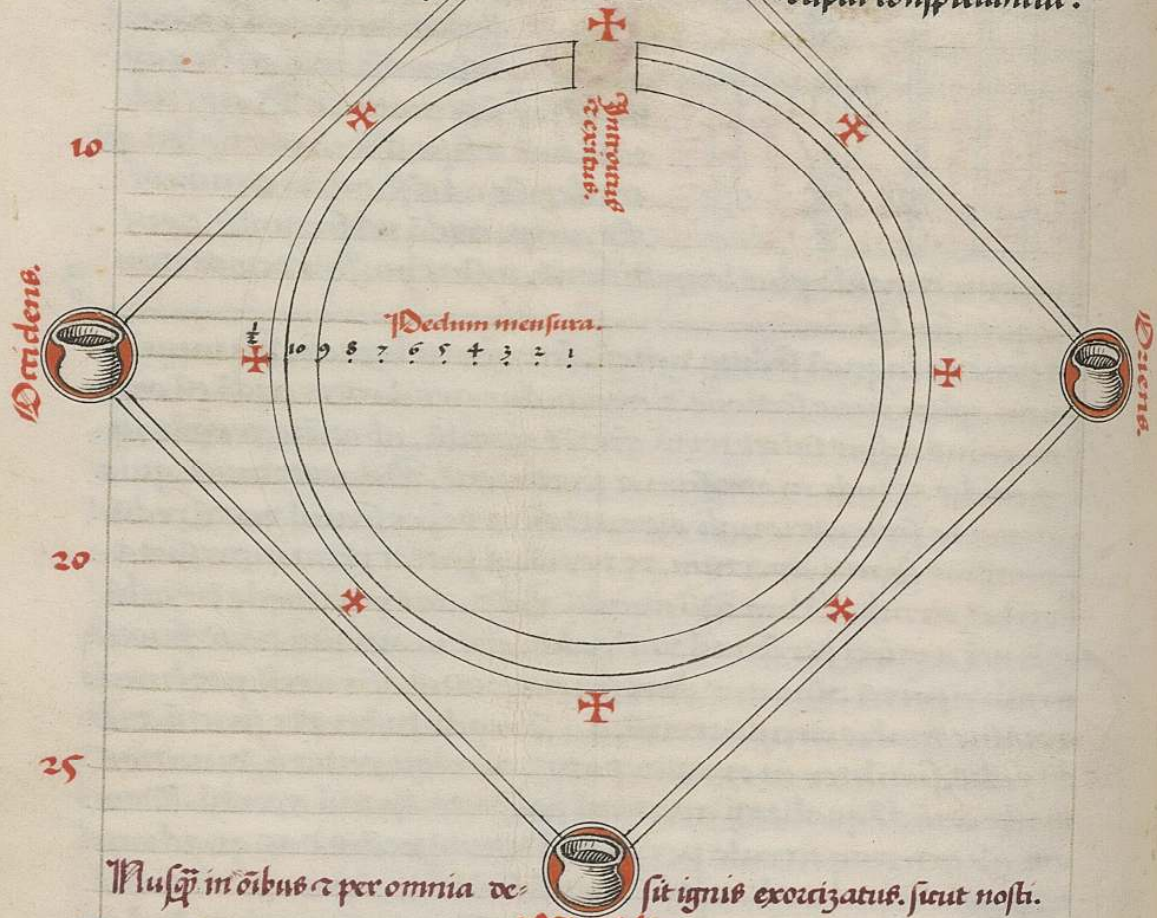 10
Introitus
⁊ exitus.
Occidens.
Oriens.
Pedum mensura.
½
10 9 8 7 6 5 4 3 2 1
20
25
Nusq̄ꝫ in oībus ⁊ per omnia de-
sit ignis exorcizatus. sicut nosti.